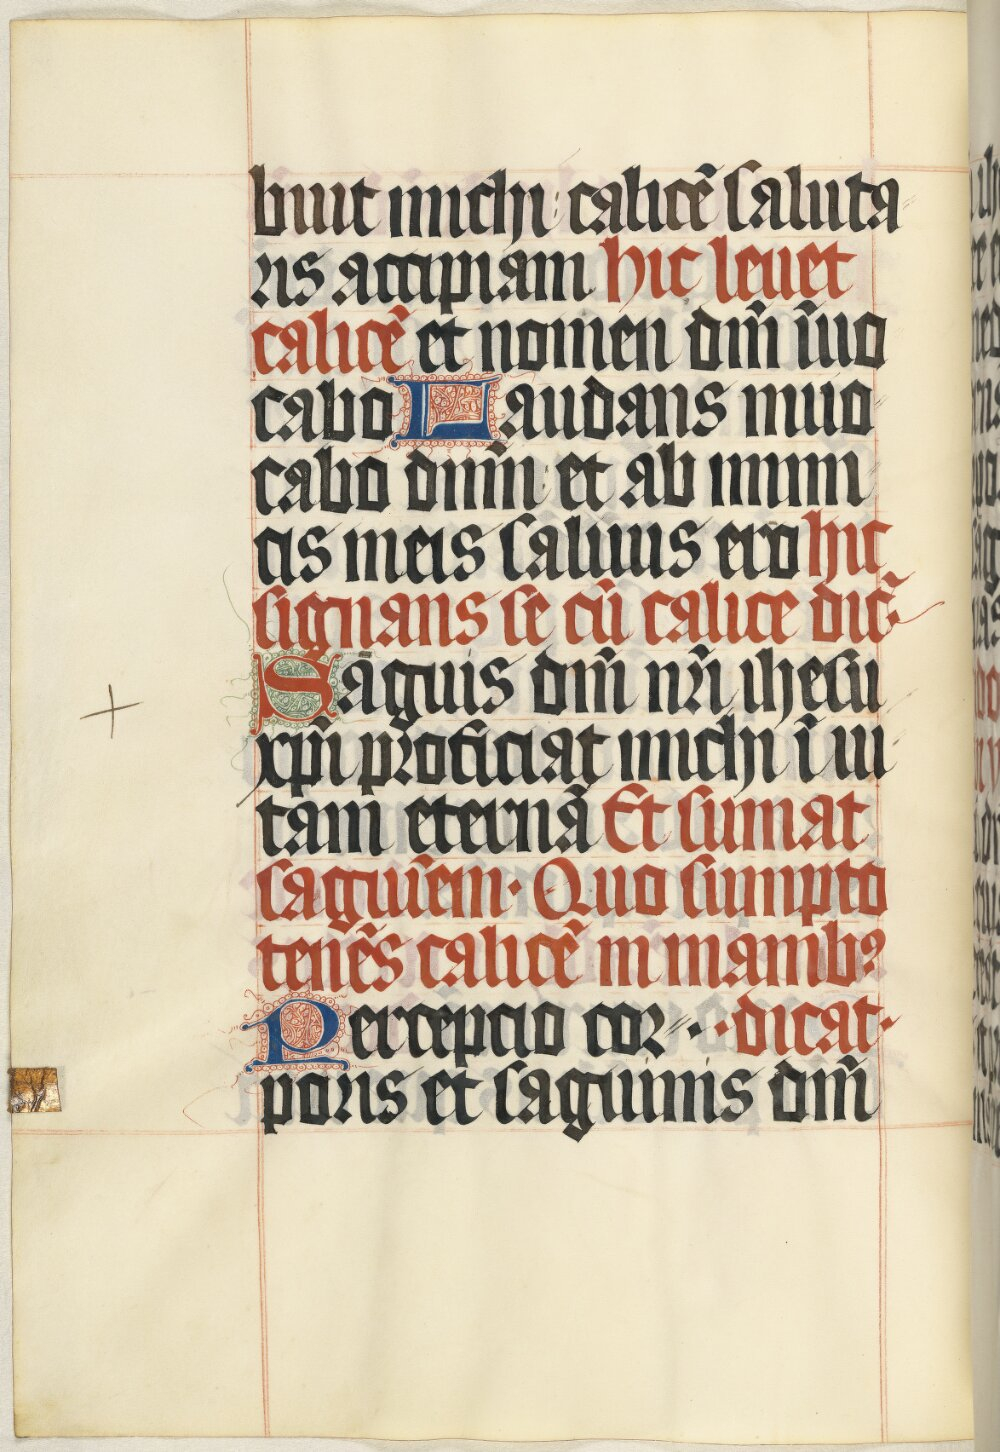 buit michi calicē saluta
ris accipiam hic leuet
calicē et nomen dm̄i īuo
cabo Laudans inuo
cabo dnm̄ et ab inimi
cis meis saluus ero hic
signans se cū calice dic̄
Sāguis dm̄i nr̄i ihesu
xp̄i proficiat michi ī ui
tam eternā Et sumat
sāguīem · Quo sumpto
tenēs calicē in manibꝫ
Percepcio cor · dicat ·
poris et sāguinis dm̄i